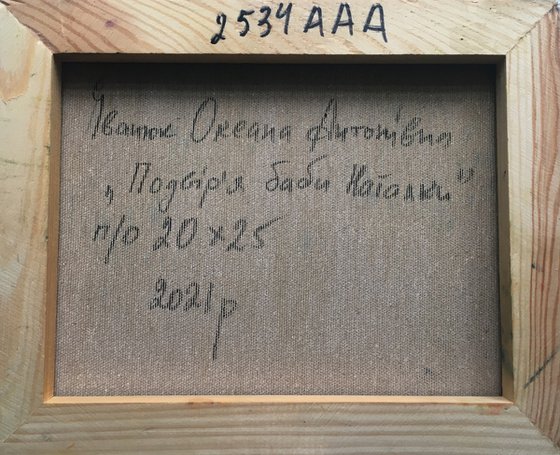 2534 AAA
Іванюк Оксана Антонівна
„Подвір'я баби Наталки"
п/о 20 х 25
2021р